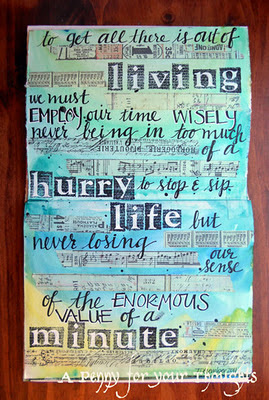 to get all there is out of
living
we must
EMPLOY our time WISELY
never being in too much
of a
hurry to stop & sip
life but
never losing
our
sense
of the ENORMOUS
VALUE of a
minute
A Peppy for your Thoughts